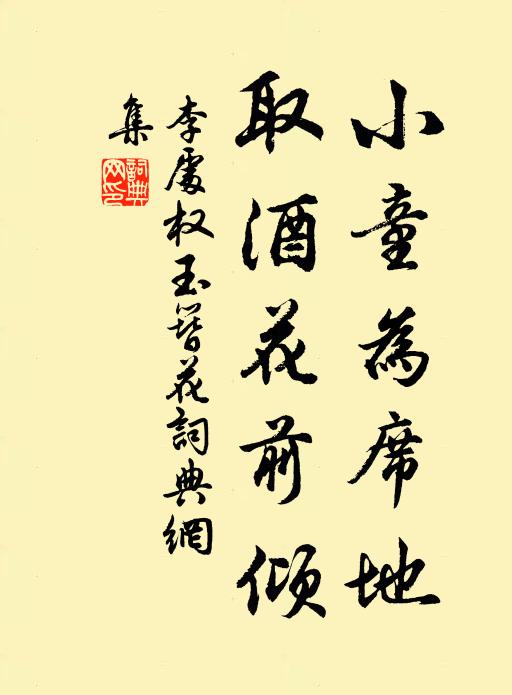 小童為席地
取酒花前傾
李處权玉簪花詞典網
集
詞典網印